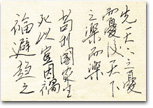 先天下之憂
而憂後天下
之樂而樂
苟利國家生
死以豈因禍
福避趨之